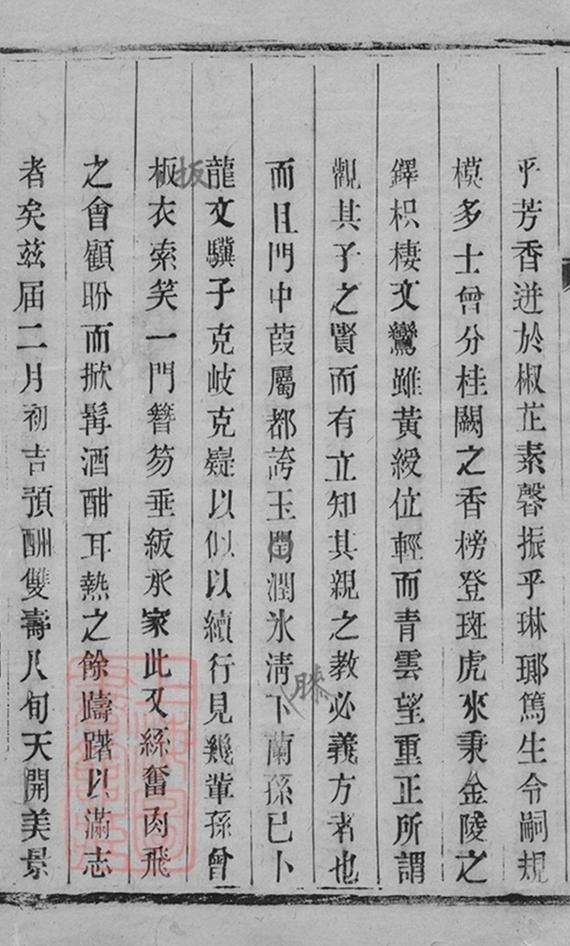 乎芳香迸於椒茝素馨振乎琳瑯篤生令嗣規
模多士曾分桂闕之香榜登斑虎來秉金陵之
鐸枳棲文鸞雖黃綬位輕而青雲望重正所謂
觀其子之賢而有立知其親之教必義方者也
而且門中葭屬都誇玉閏潤氷淸下蘭孫已卜
膝
龍文驥子克岐克嶷以似以續行見幾輩孫曾
板衣索笑一門簪笏垂紱承家此又絲奮肉飛
扳
之會顧盼而掀髯酒酣耳熱之餘躊躇以滿志
者矣玆届二月初吉預酬雙壽八旬天開美景